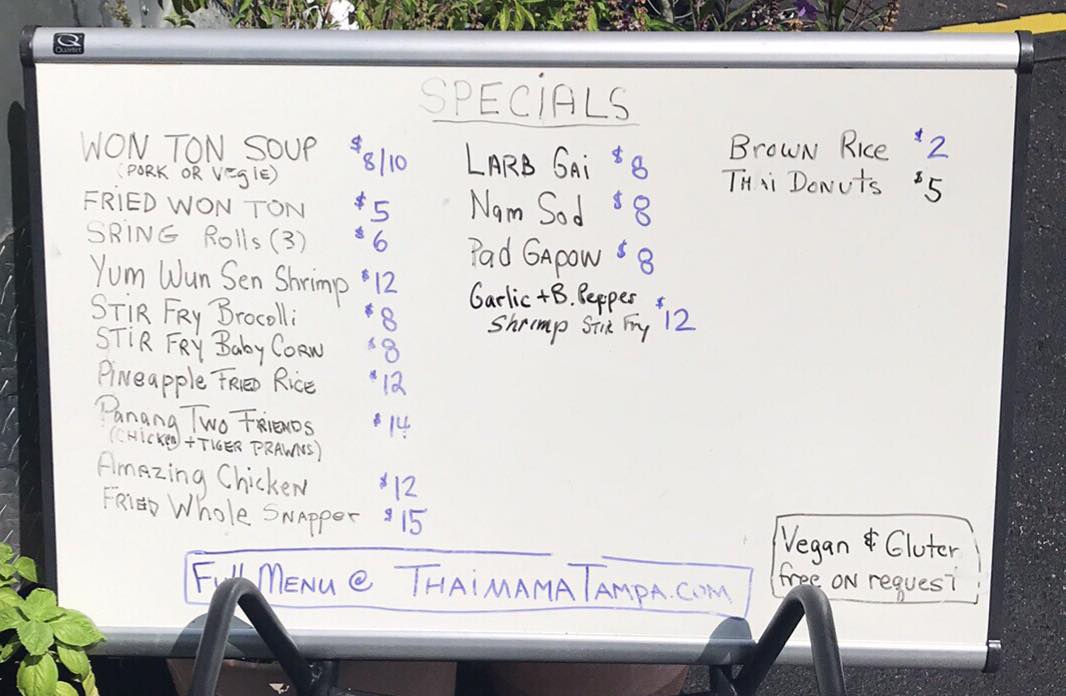 Quartet
SPECIALS
WON TON SOUP $8/10
(PORK OR VEgIE)
FRIED WON TON $5
SRING Rolls (3) $6
Yum Wun Sen Shrimp $12
STIR FRY Brocolli $8
STIR FRY Baby CORN $8
PINEapple FRIED RICE $12
Panang Two FRIENDS $14
(CHICKEN + TIGER PRAWNS)
Amazing Chicken $12
FRIED Whole SNAPPER $15
LARB GAI $8
Nam Sod $8
Pad GAPOW $8
Garlic + B. Pepper
Shrimp STIR Fry $12
BROWN RICE $2
THAI DONUTS $5
Full MENU @ THAIMAMATAMPA.COM
Vegan & Gluten
free ON request